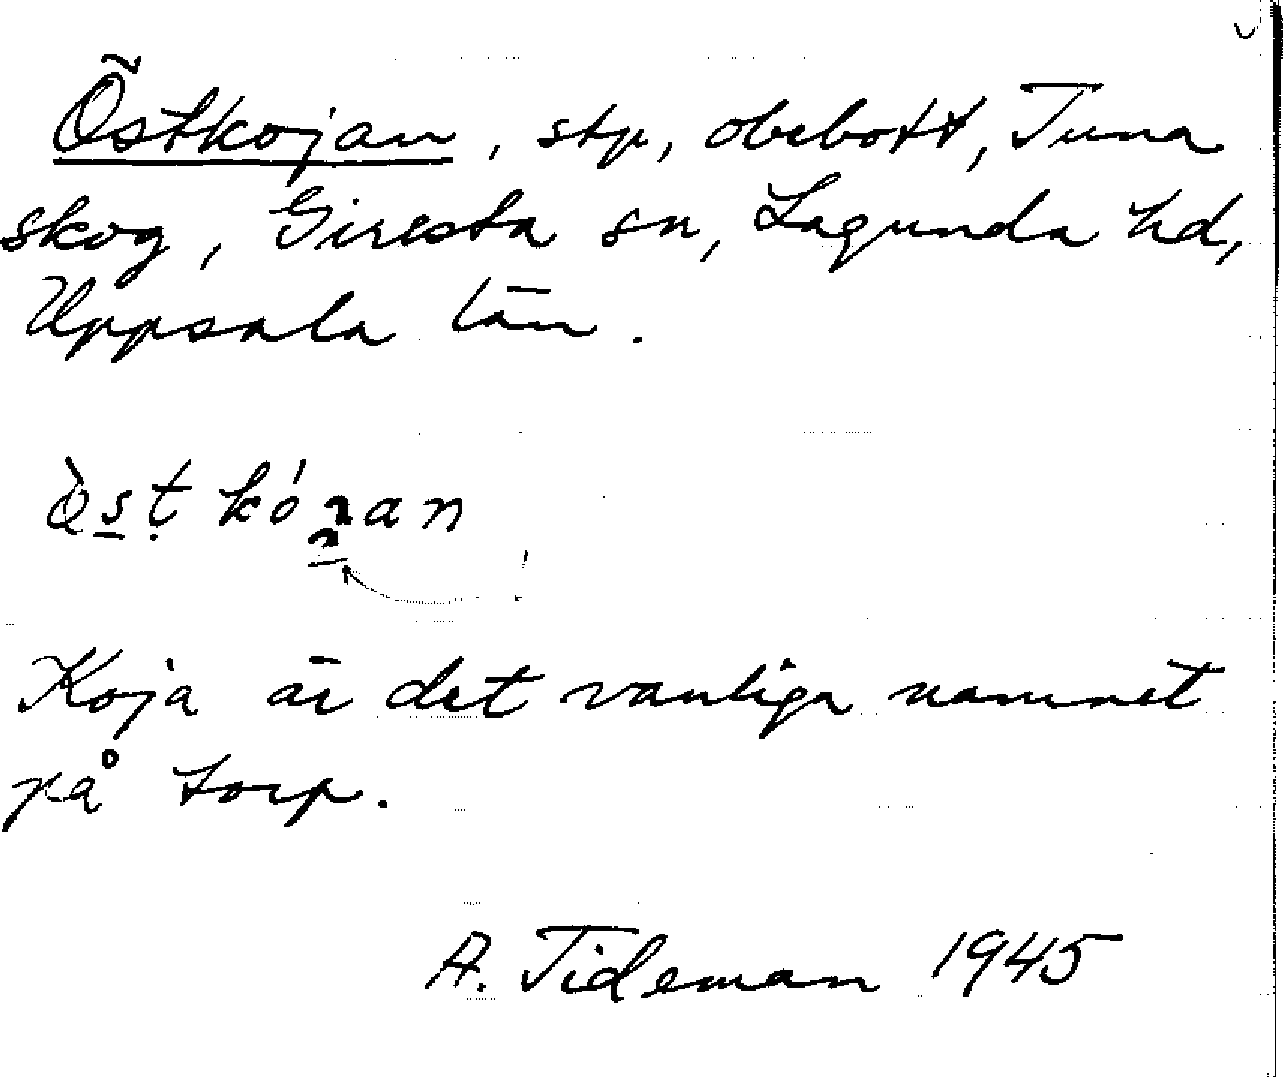 Östkojan, stp, obebott, Tuna
skog, Giresta sn, Lagunda hd,
Uppsala län.
Koja är det vanliga namnet
på torp.
A. Tideman 1945